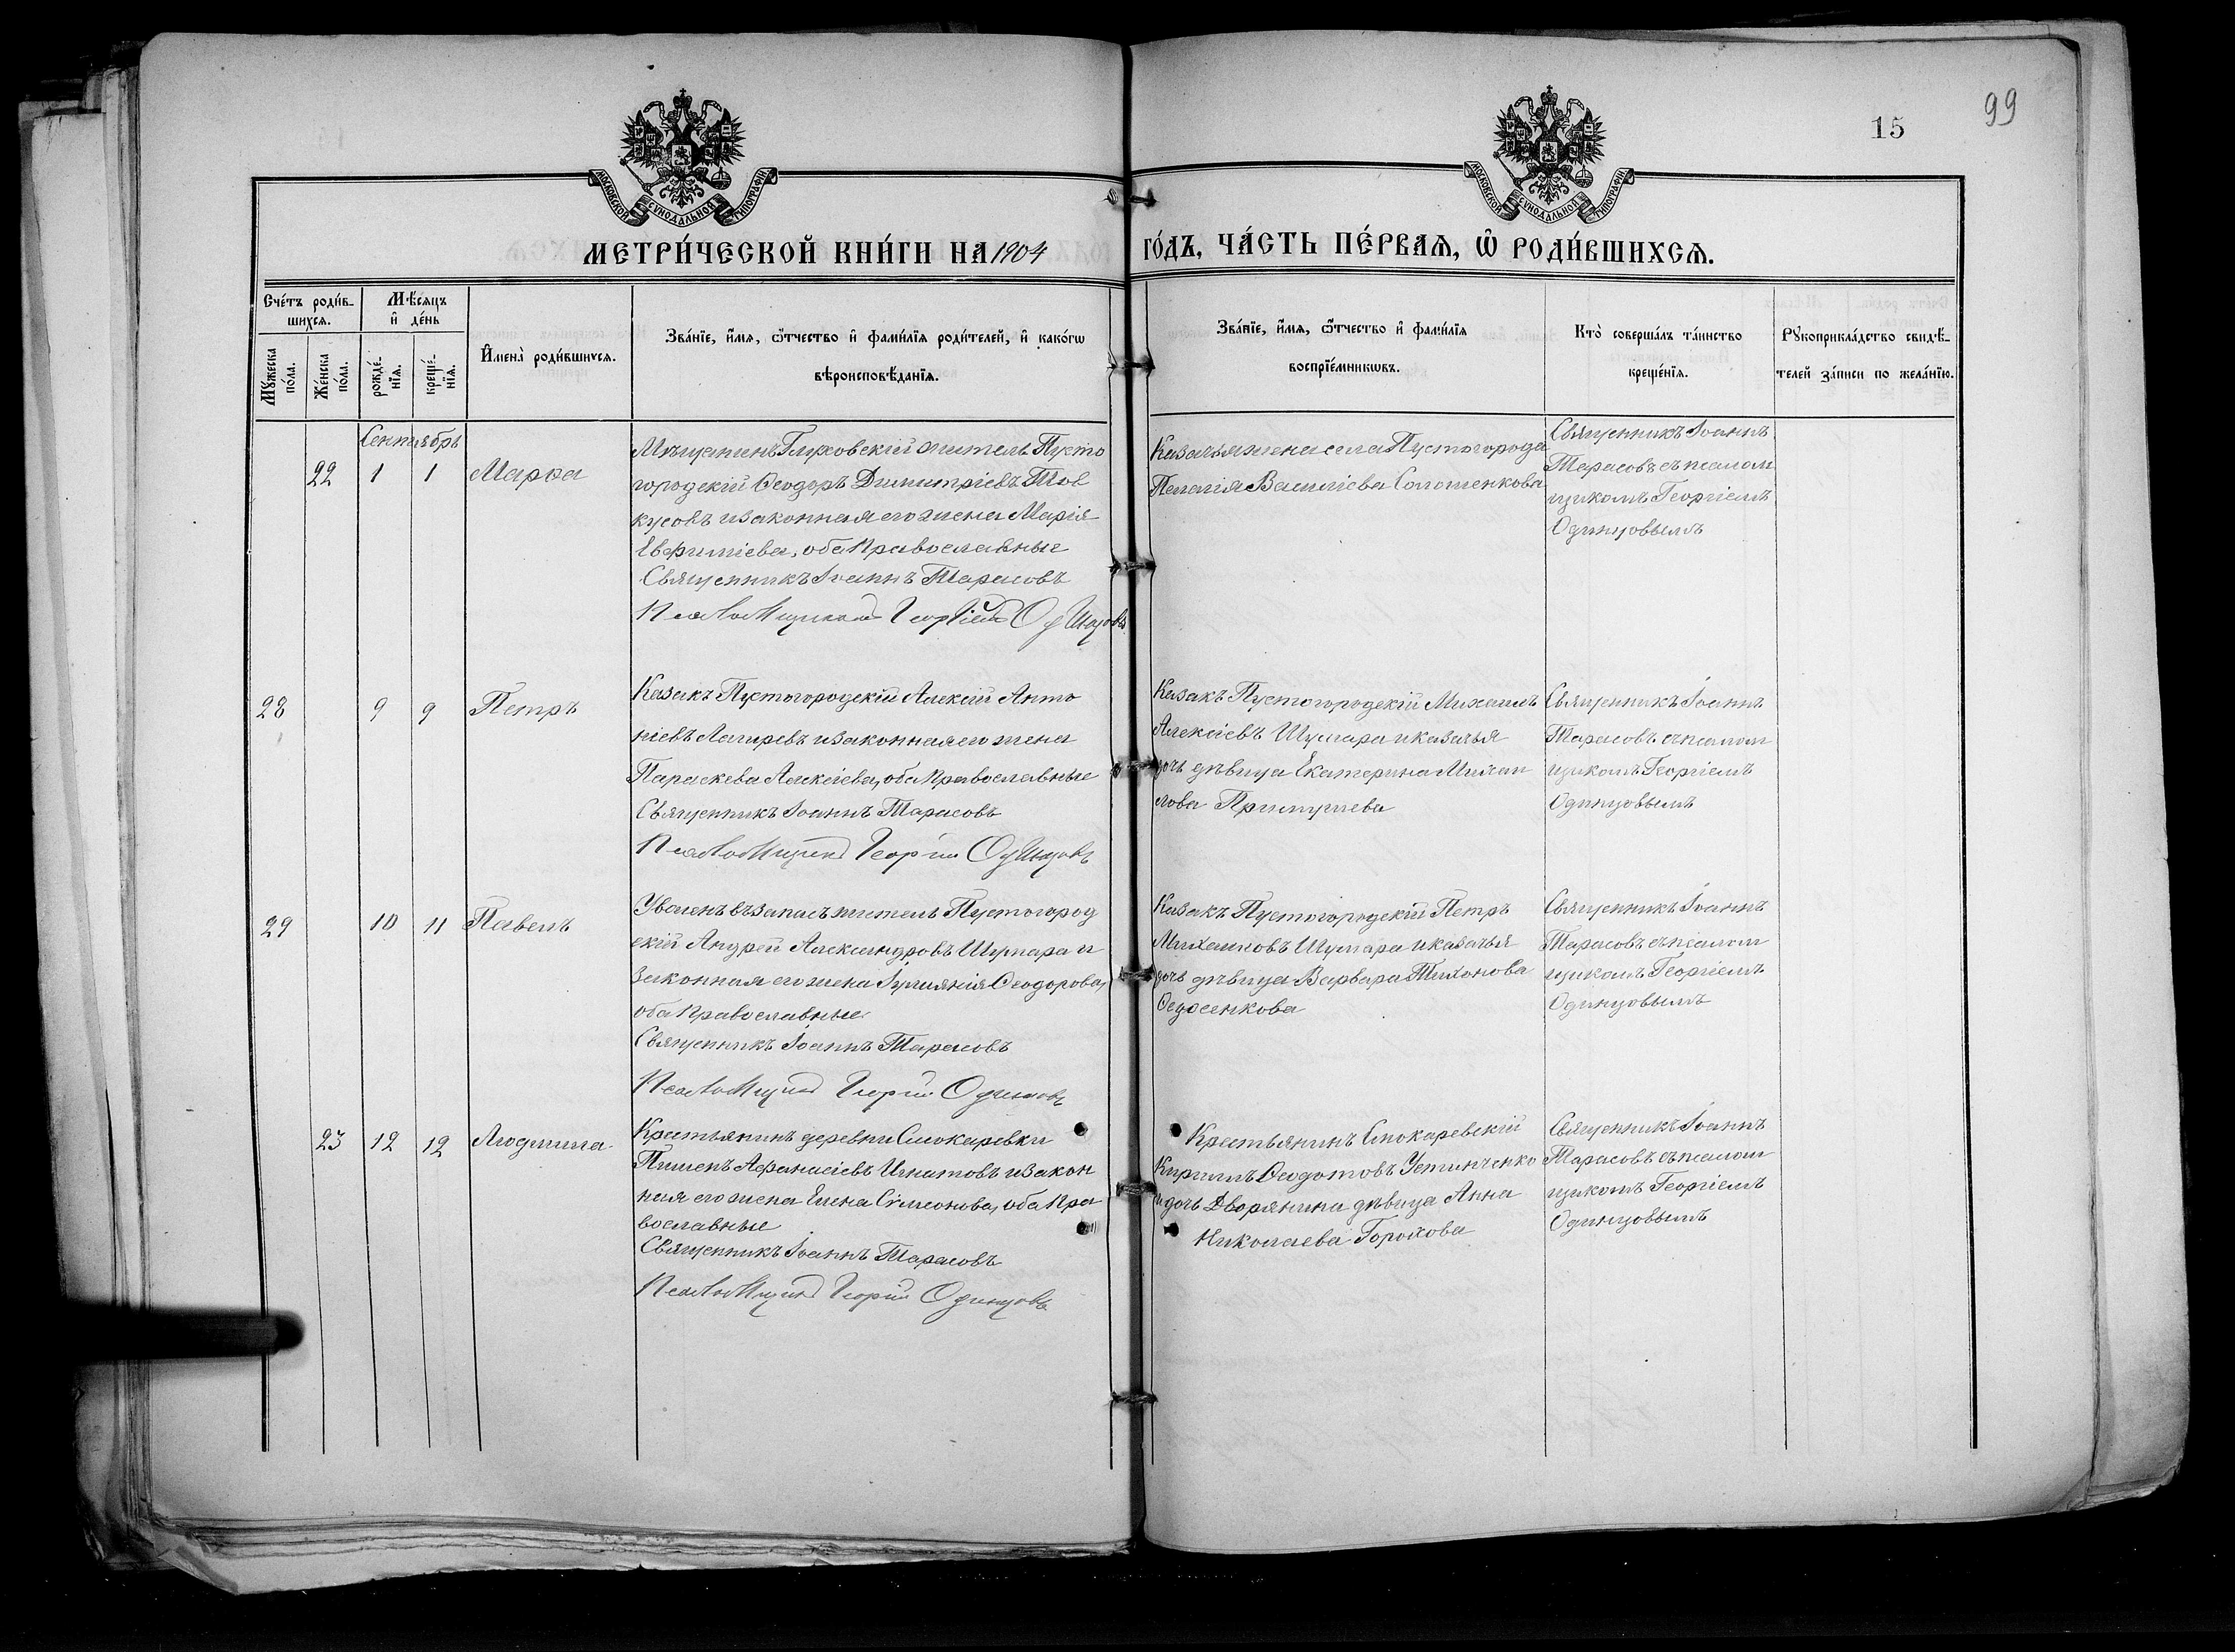 99
15
МОСКОВСКОЙ СѴНОДАЛЬНОЙ ТИПОГРАФІИ
МОСКОВСКОЙ СѴНОДАЛЬНОЙ ТИПОГРАФІИ
МЕТРИ́ЧЕСКОЙ КНИ́ГИ НА 1904 ГО́ДЪ, ЧА́СТЬ ПЕ́РВАѦ, Ѡ҆ РОДИ́ВШИХСѦ.
Сче́тъ роди́в-
шихсѧ.
Мꙋ́жеска
по́ла.
Же́нска
по́ла.
Мѣ́сѧцъ
и҆ де́нь
рожде́-
нїѧ.
креще́-
нїѧ.
И҆мена̀ роди́вшихсѧ.
Зва́нїе, и҆́мѧ, ѻ҆́тчество и҆ фами́лїѧ роди́телей, и҆ како́гѡ
вѣроисповѣ́данїѧ.
Зва́нїе, и҆́мѧ, ѻ҆́тчество и҆ фами́лїѧ
воспрїе́мникѡвъ.
Кто̀ соверша́лъ та́инство
креще́нїѧ.
Рꙋкоприкла́дство свидѣ́-
телей за́писи по жела́нїю.
Сентябрь
22 1 1 Марѳа
Мѣщанинъ Глуховскій житель Пусто
городскій Ѳеодоръ Димитріевъ Тов
кусовъ и законная его жена Марія
Евфиміева, оба православные
Священникъ Іоаннъ Тарасовъ
Псаломщикъ Георгій Одинцовъ
Казачья жена села Пустогорода
Пелагія Василіева Соломенкова
Священникъ Іоаннъ
Тарасовъ съ псалом
щикомъ Георгіемъ
Одинцовымъ
28 9 9 Петръ
Казакъ Пустогородскій Алексій Анто
ніевъ Лапыревъ и законная его жена
Параскева Алексіева, оба православные
Священникъ Іоаннъ Тарасовъ
Псаломщикъ Георгій Одинцовъ
Казакъ Пустогородскій Михаилъ
Алексіевъ Шумара и казачья
дочь дѣвица Екатерина Михаи
лова
Священникъ Іоаннъ
Тарасовъ съ псалом
щикомъ Георгіемъ
Одинцовымъ
29 10 11 Павелъ
Уволенъ въ запасъ житель Пустогород
скій Андрей Александровъ Шумара и
законная его жена Іуліанія Ѳеодорова,
оба православные
Священникъ Іоаннъ Тарасовъ
Псаломщикъ Георгій Одинцовъ
Казакъ Пустогородскій Петръ
Михаиловъ Шумара и казачья
дочь дѣвица Варвара Тихонова
Ѳедосенкова
Священникъ Іоаннъ
Тарасовъ съ псалом
щикомъ Георгіемъ
Одинцовымъ
23 12 12 Людмила
Крестьянинъ деревни Смокаревки
Пименъ Аѳанасіевъ Игнатовъ и закон
ная его жена Елена Сѵмеонова, оба пра
вославные
Священникъ Іоаннъ Тарасовъ
Псаломщикъ Георгій Одинцовъ
Крестьянинъ Смокаревскій
Кириллъ Ѳеодотовъ Устинченко
и дочь Дворянина дѣвица Анна
Николаева Горохова
Священникъ Іоаннъ
Тарасовъ съ псалом
щикомъ Георгіемъ
Одинцовымъ